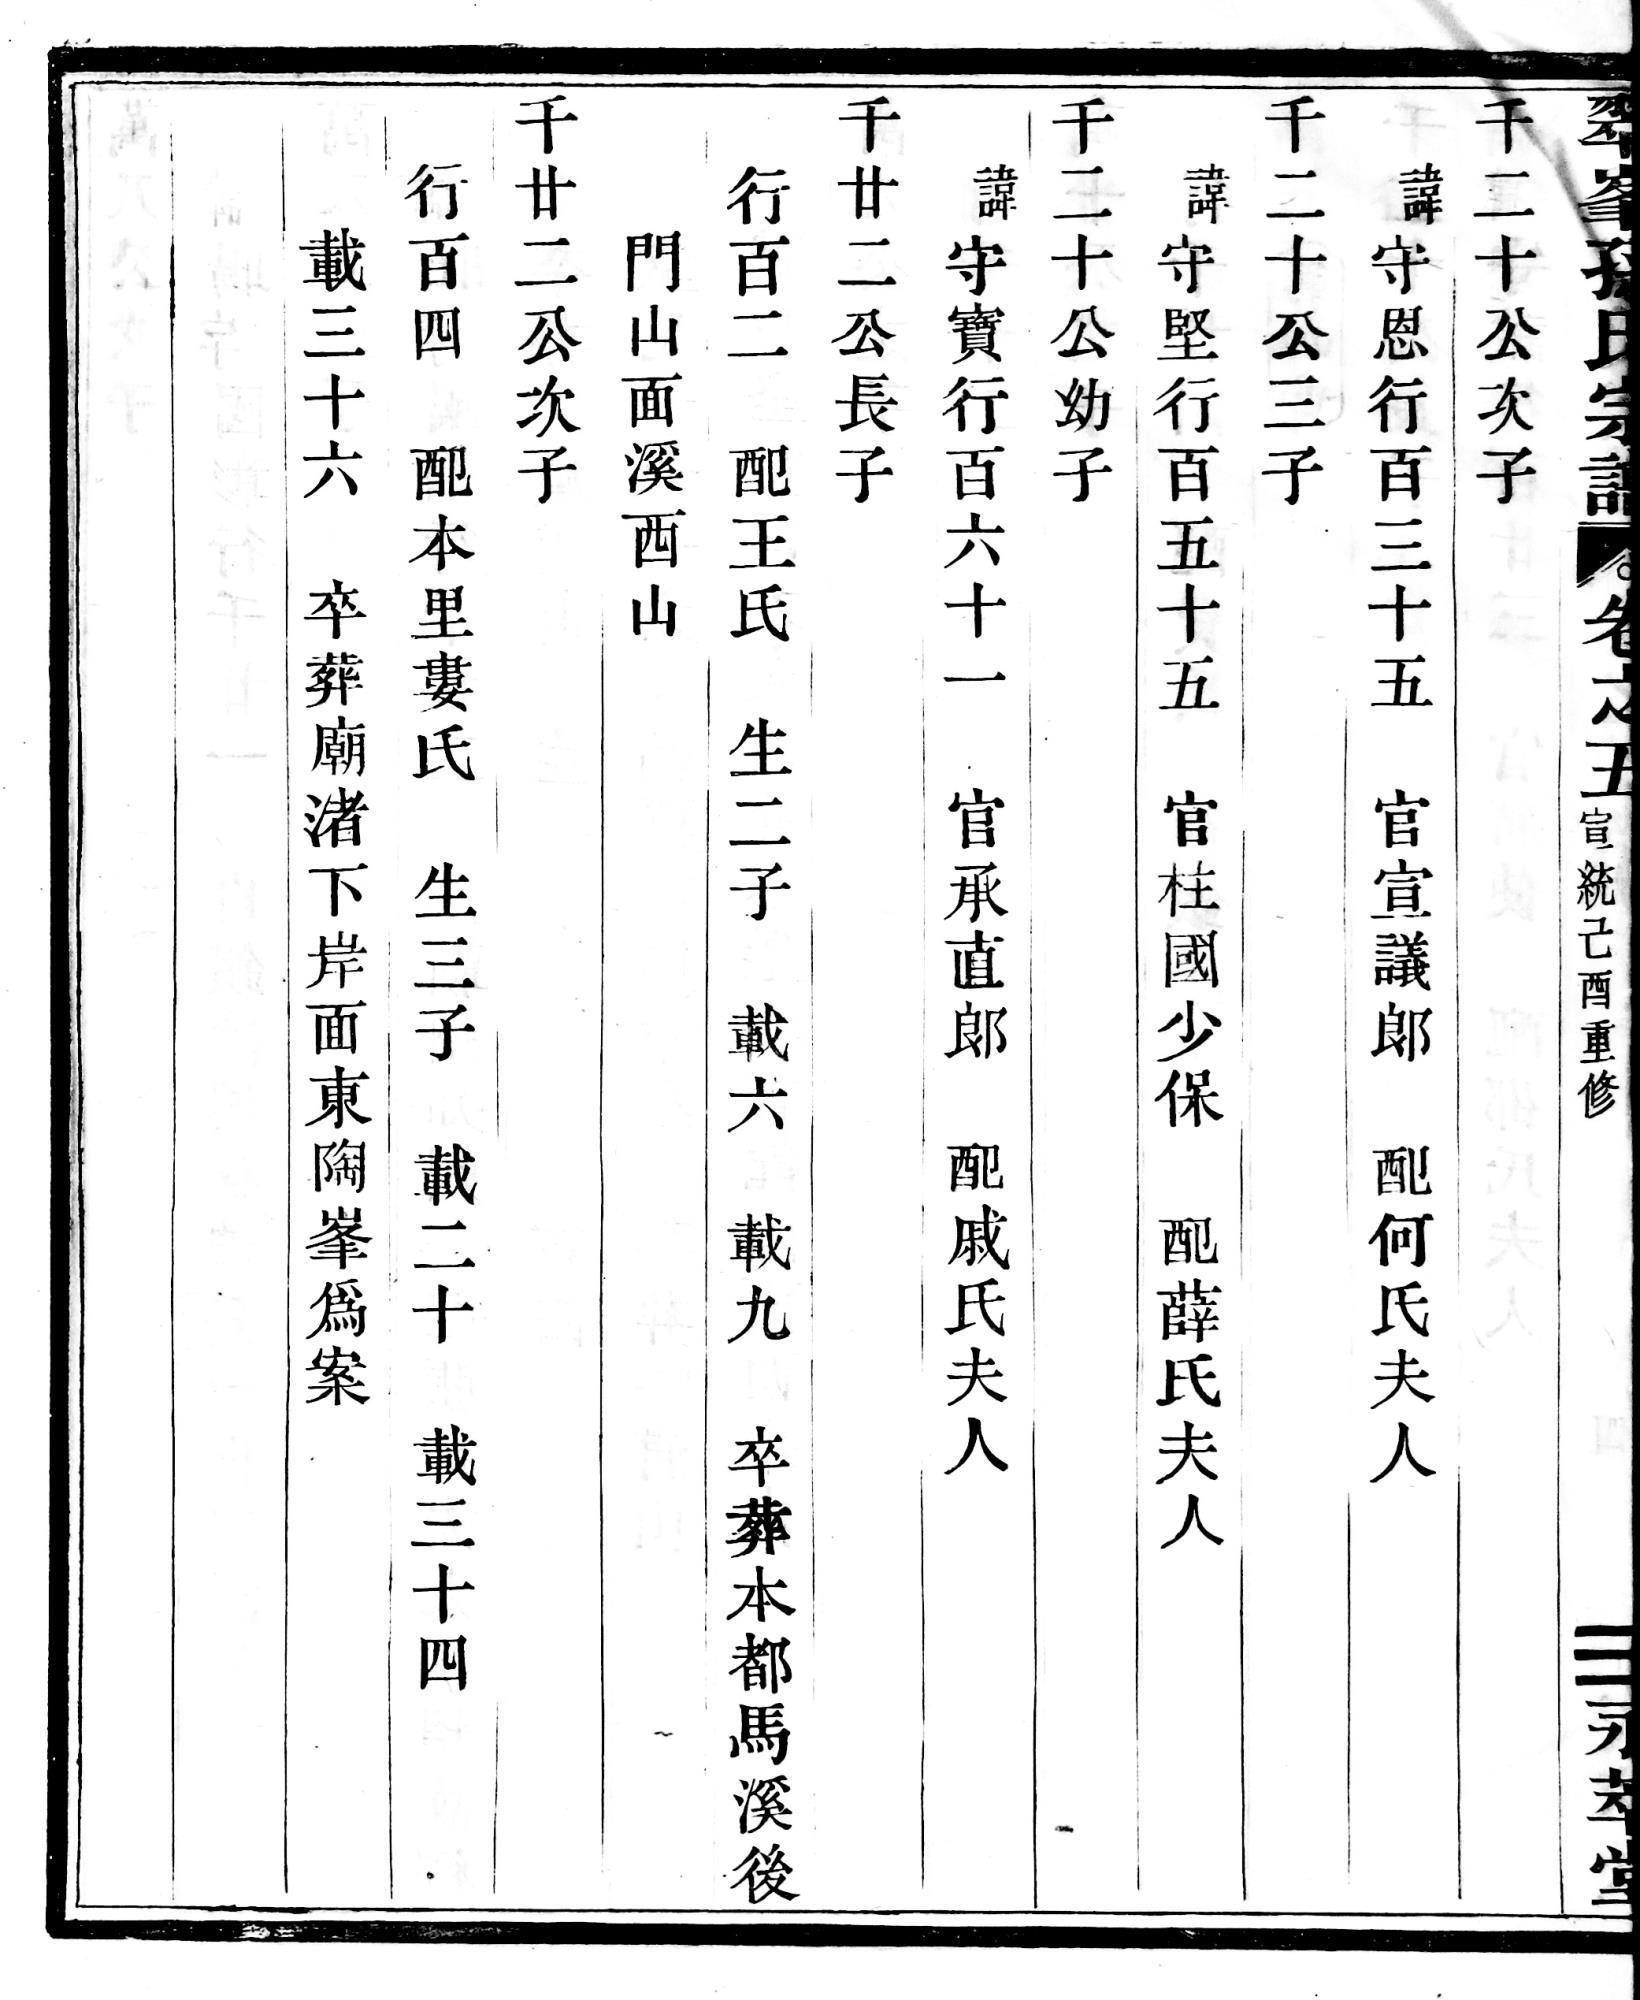 翠峯孫氏宗譜 卷之五 宣統己酉重修 二 永萃堂
千二十公次子
諱守恩行百三十五 官宣議郎 配何氏夫人
千二十公三子
諱守堅行百五十五 官柱國少保 配薛氏夫人
千二十公幼子
諱守寶行百六十一 官承直郎 配戚氏夫人
千廿二公長子
行百二 配王氏 生二子 載六 載九 卒葬本都馬溪後
門山面溪西山
千廿二公次子
行百四 配本里婁氏 生三子 載二十 載三十四
載三十六 卒葬廟渚下岸面東陶峯爲案